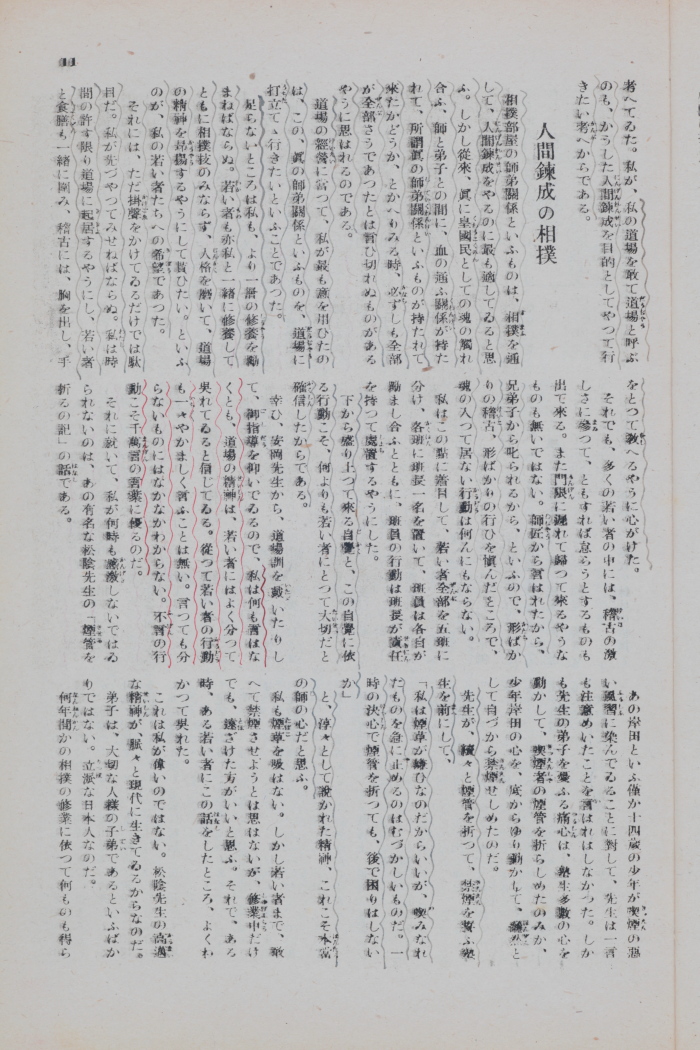 11
考へてゐた。私が、私の道場を敢て道場と呼ぶ
のも、かうした人間錬成を目的としてやつて行
きたい考へからである。
人間錬成の相撲
相撲部屋の師弟關係といふものは、相撲を通
して、人間錬成をやるのに最も適してゐると思
ふ。しかし從來、眞に皇國民としての魂の觸れ
合ふ、師と弟子との間に、血の通ふ關係が持た
れて、所謂眞の師弟關係といふものが持たれて
來たかどうか、とかへりみる時、必ずしも全部
が全部さうであつたとは言ひ切れぬものがある
やうに思はれるのである。
道場の經營に當つて、私が最も意を用ひたの
は、この、眞の師弟關係といふものを、道場に
打立てゝ行きたいといふことであつた。
足らないところは私も、より一層の修養を勵
まねばならぬ。若い者も亦私と一緒に修養して
ともに相撲技のみならず、人格を磨いて、道場
の精神を昂揚するやうにして貰ひたい。といふ
のが、私の若い者たちへの希望であつた。
それには、ただ掛聲をかけてゐるだけでは駄
目だ。私が先づやつてみせねばならぬ。私は時
間の許す限り道場に起居するやうにし、若い者
と食膳も一緒に圍み、稽古には、胸を出し、手
をとつて教へるやうに心がけた。
それでも、多くの若い者の中には、稽古の激
しさに參つて、ともすれば怠らうとするものも
出て來る。また門限に遲れて歸つて來るやうな
ものも無いではない。師匠から言はれたから、
兄弟子から叱られるから、といふので、形ばか
りの稽古、形ばかりの行ひを愼んだところで、
魂の入つて居ない行動は何んにもならない。
私はこの點に着目して、若い者全部を五班に
分け、各班に班長一名を置いて、班員は各自が
勵まし合ふとともに、班員の行動は班長が責任
を持つて處置するやうにした。
下から盛り上つて來る自覺と、この自覺に依
る行動こそ、何よりも若い者にとつて大切だと
確信したからである。
幸ひ、安岡先生から、道場訓を戴いたりし
て、御指導を仰いでゐるので、私は何も言はな
くとも、道場の精神は、若い者にはよく分つて
呉れてゐると信じてゐる。從つて若い者の行動
も一々やかましく言ふことは無い。言つても分
らないものにはなかなかわからない。不言の行
動こそ千萬言の言葉に優るのだ。
それに就いて、私が何時も感激しないではゐ
られないのは、あの有名な松陰先生の「煙管を
折るの記」の話である。
あの岸田といふ僅か十四歳の少年が喫煙の惡
い風習に染んでゐることに對して、先生は一言
も注意めいたことを言はれはしなかつた。しか
も先生の弟子を憂ふる痛心は、塾生多數の心を
動かして、喫煙者の煙管を折らしめたのみか、
少年岸田の心を、底からゆり動かして、翻然と
して自づから禁煙せしめたのだ。
先生が、續々と煙管を折つて、禁煙を誓ふ塾
生を前にして、
「私は煙草が嫌ひなのだからいいが、喫みなれ
たものを急に止めるのはむづかしいものだ。一
時の決心で煙管を折つても、後で困りはしない
か」
と、淳々として說かれた精神、これこそ本當
の師の心だと思ふ。
私も煙草を吸はない。しかし若い者まで、敢
へて禁煙させようとは思はないが、修業中だけ
でも、遠ざけた方がいいと思ふ。それで、ある
時、ある若い者にこの話をしたところ、よくわ
かつて呉れた。
これは私が偉いのではない。松陰先生の高邁
な精神が、脈々と現代に生きてゐるからなのだ。
弟子は、大切な人樣の子弟であるといふばか
りではない。立派な日本人なのだ。
何年間かの相撲の修業に依つて何ものも得ら